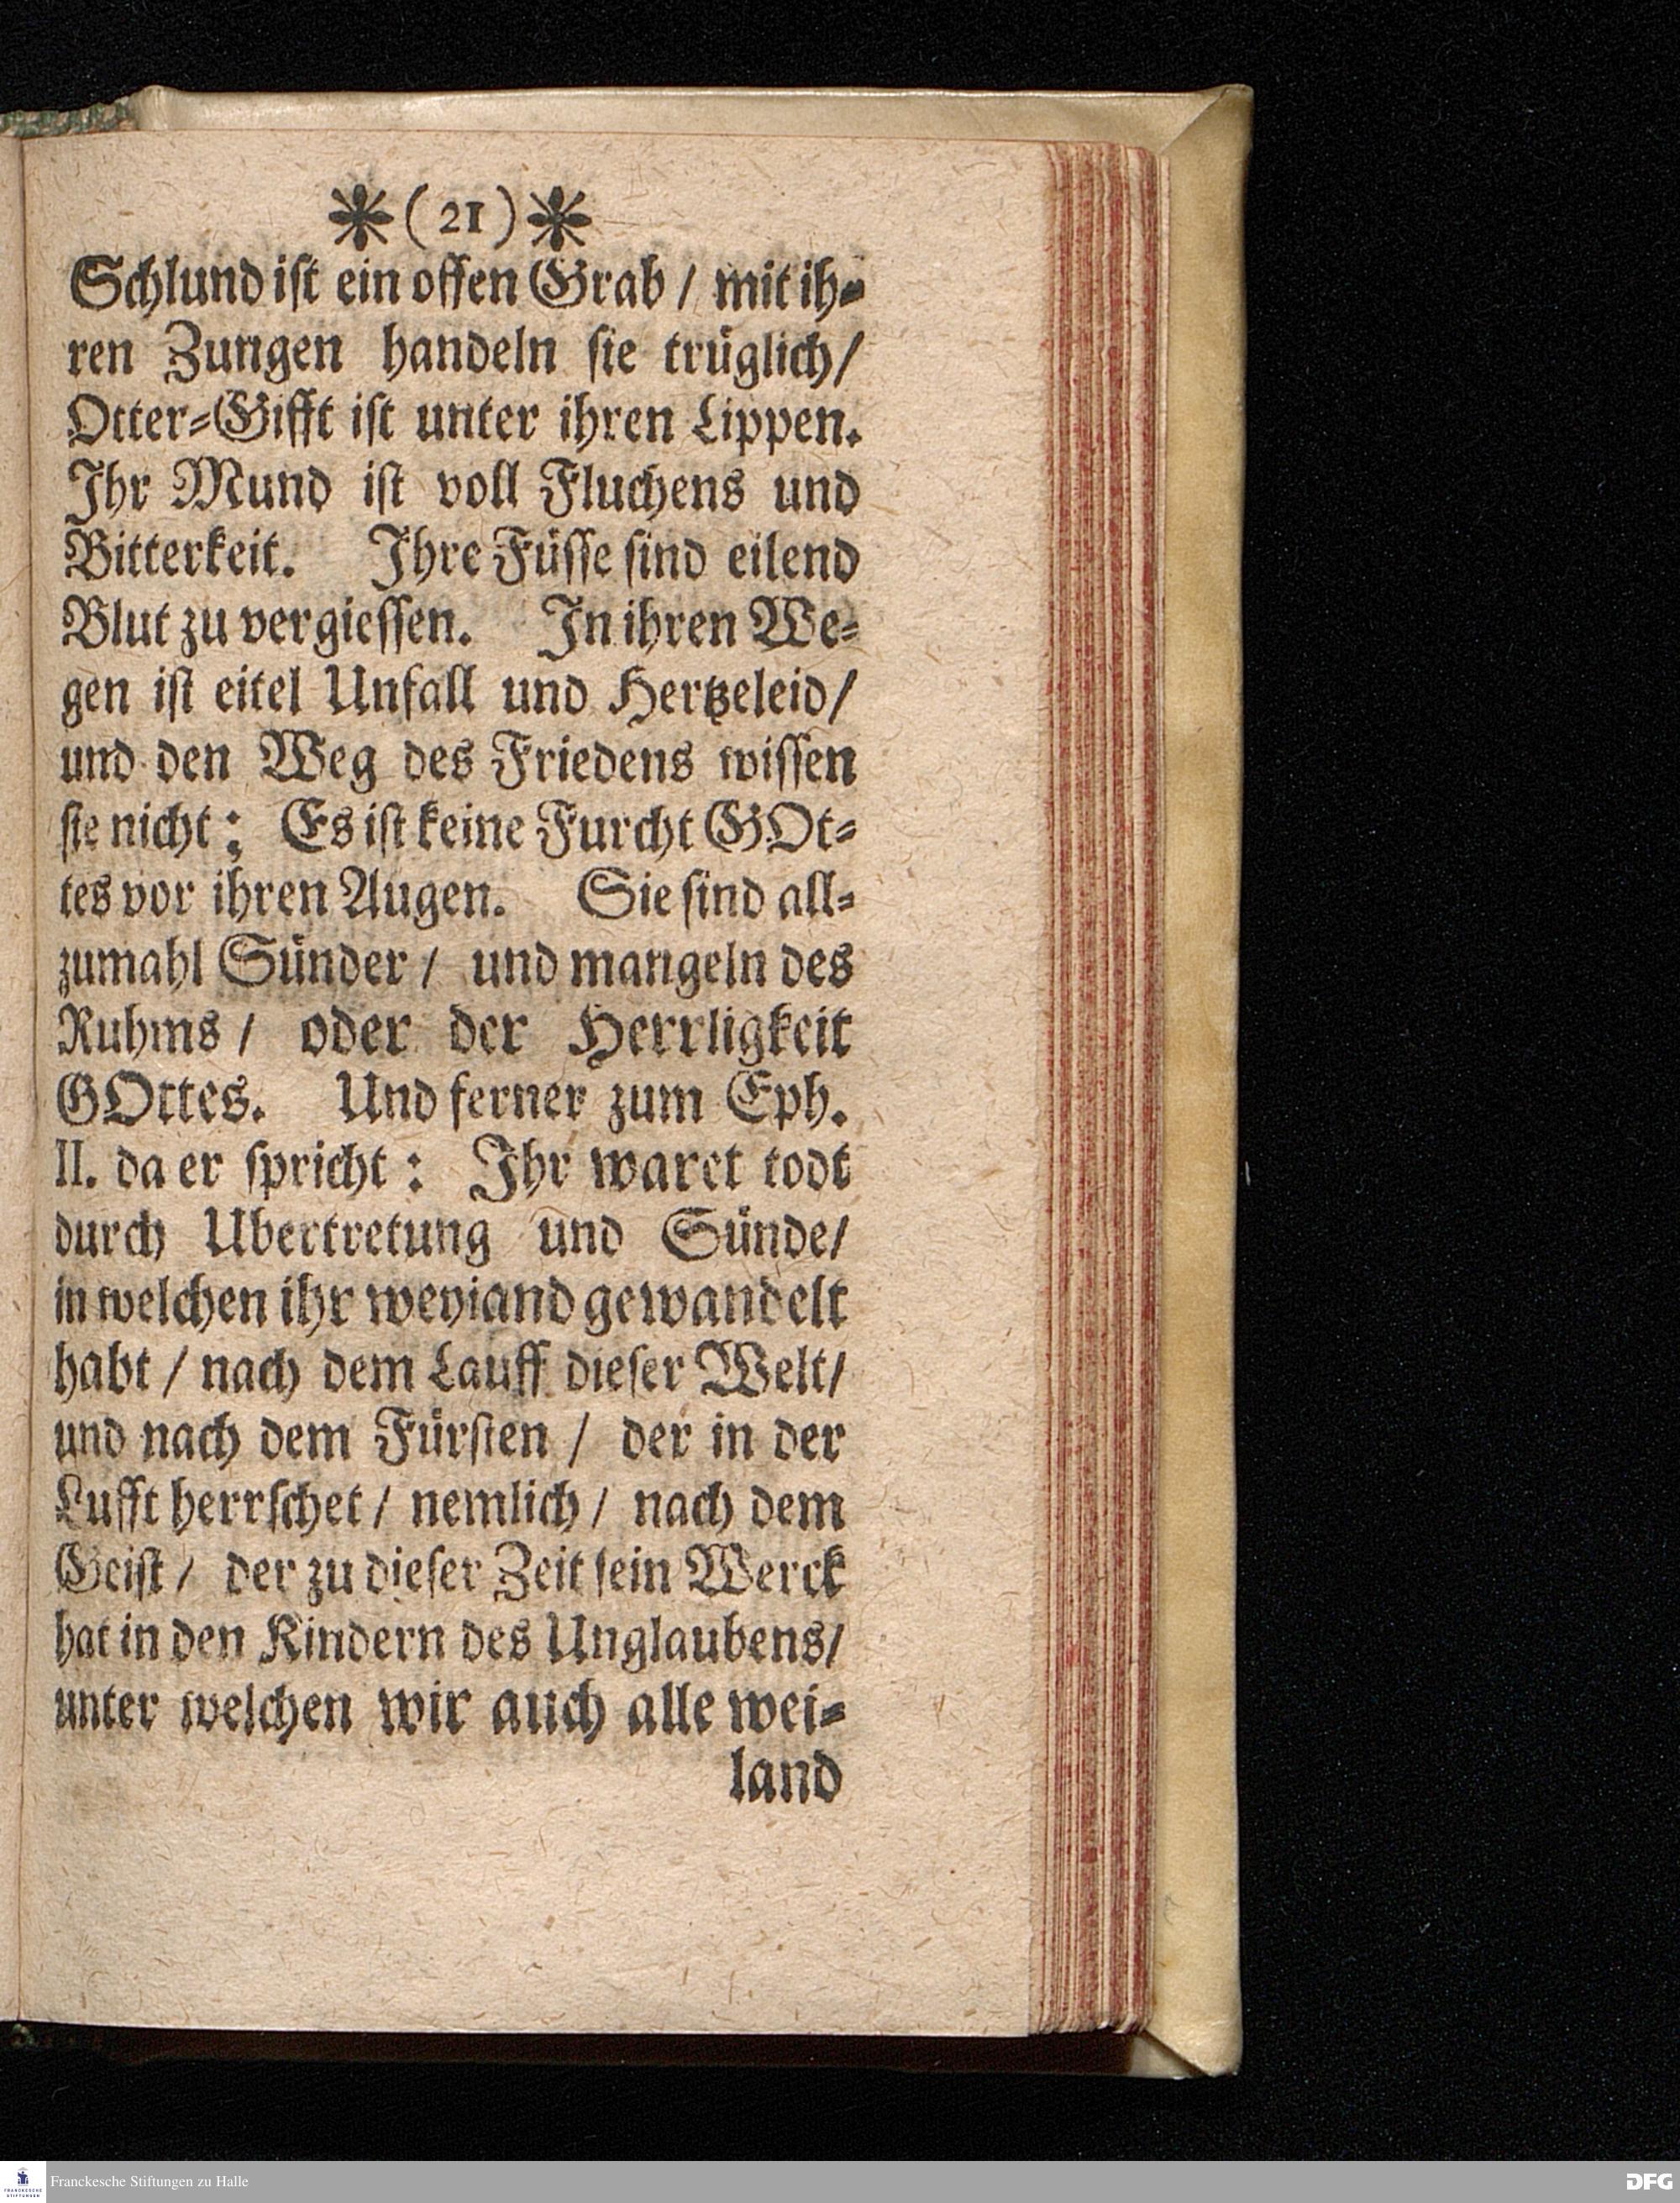 *(21)*
Schlund iſt ein offen Grab / mit ih⸗
ren Zungen handeln ſie trüglich/
Otter⸗Gifft iſt unter ihren Lippen.
Ihr Mund iſt voll Fluchens und
Bitterkeit. Ihre Füſſe ſind eilend
Blut zu vergieſſen. In ihren We⸗
gen iſt eitel Unfall und Hertzeleid/
und den Weg des Friedens wiſſen
ſie nicht; Es iſt keine Furcht GOt⸗
tes vor ihren Augen. Sie ſind all⸗
zumahl Sünder / und mangeln des
Ruhms / oder der Herrligkeit
GOttes. Und ferner zum Eph.
II. da er ſpricht: Ihr waret todt
durch Ubertretung und Sünde/
in welchen ihr weyland gewandelt
habt / nach dem Lauff dieſer Welt/
und nach dem Fürſten / der in der
Lufft herrſchet / nemlich / nach dem
Geiſt / der zu dieſer Zeit ſein Werck
hat in den Kindern des Unglaubens/
unter welchen wir auch alle wei⸗
land
FRANCKESCHE
STIFTUNGEN
Franckesche Stiftungen zu Halle
DFG